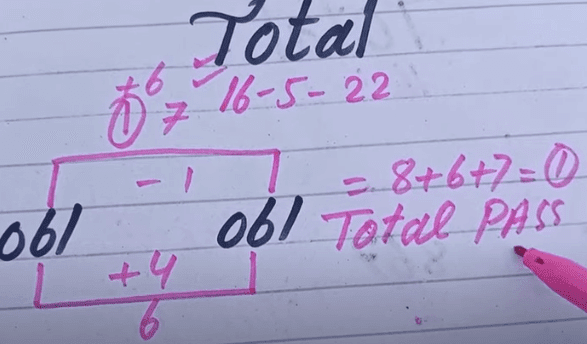 Total
+6
① 7 16-5-22
- 1
= 8+6+7=①
061 061 Total PASS
+4
6